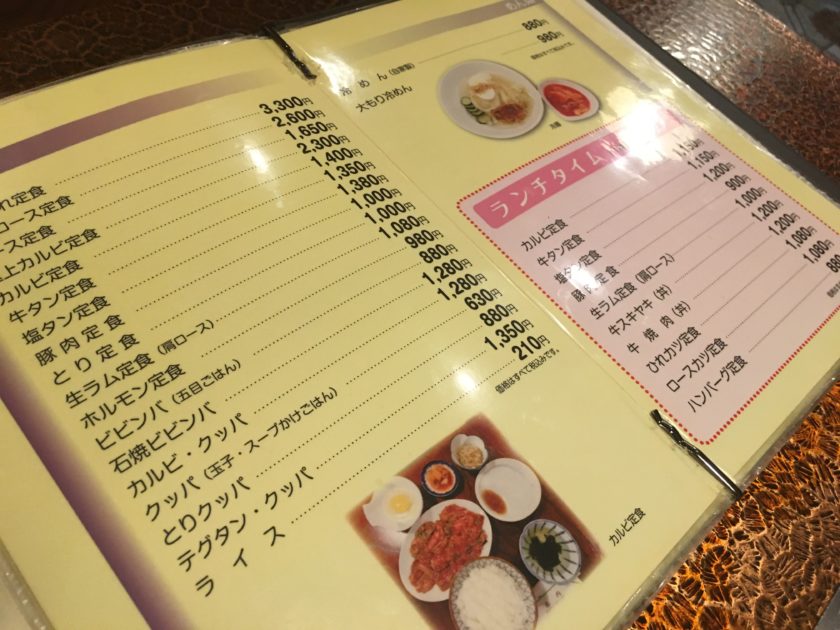 れ定食 3,300円
ロース定食 2,600円
ース定食 1,650円
上カルビ定食 2,300円
カルビ定食 1,400円
牛タン定食 1,350円
塩タン定食 1,380円
豚肉定食 1,000円
とり定食 1,000円
生ラム定食(肩ロース) 1,080円
ホルモン定食 980円
ビビンバ(五目ごはん) 880円
石焼ビビンバ 1,280円
カルビ・クッパ 1,280円
クッパ(玉子・スープかけごはん) 630円
とりクッパ 880円
テグタン・クッパ 1,350円
ライス 210円
価格はすべて税込みです。
カルビ定食
冷めん(自家製) 880円
大もり冷めん 980円
価格はすべて税込みです。
冷麺
ランチタイム
カルビ定食 1,150円
牛タン定食 1,150円
塩タン定食 1,200円
豚肉定食 900円
生ラム定食(肩ロース) 1,000円
牛スキヤキ(丼) 1,200円
牛焼肉(丼) 1,200円
ひれカツ定食 1,080円
ロースカツ定食 1,080円
ハンバーグ定食